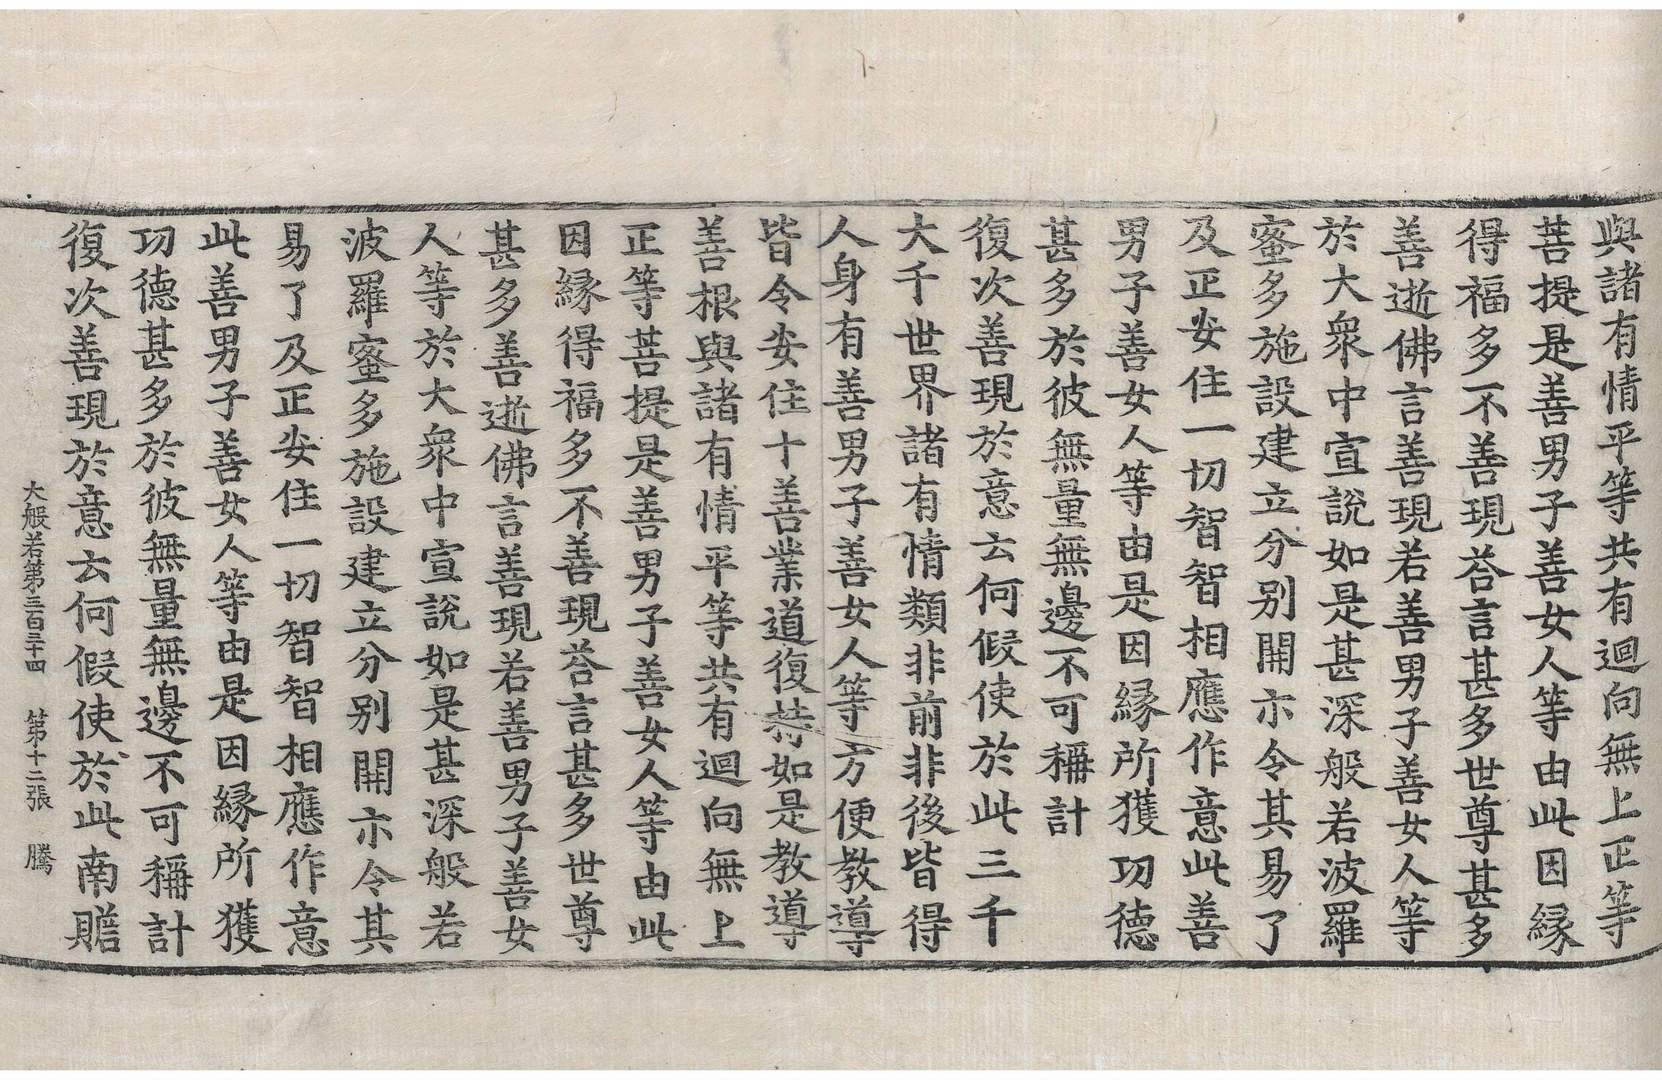 與諸有情平等共有迴向無上正等
菩提是善男子善女人等由此因縁
得福多不善現荅言甚多世尊甚多
善逝佛言善現若善男子善女人等
於大衆中宣說如是甚深般若波羅
蜜多施設建立分别開示令其易了
及正安住一切智智相應作意此善
男子善女人等由是因縁所獲功德
甚多於彼無量無邊不可稱計
復次善現於意云何假使於此三千
大千世界諸有情類非前非後皆得
人身有善男子善女人等方便教導
皆令安住十善業道復持如是教導
善根與諸有情平等共有迴向無上
正等菩提是善男子善女人等由此
因縁得福多不善現荅言甚多世尊
甚多善逝佛言善現若善男子善女
人等於大衆中宣說如是甚深般若
波羅蜜多施設建立分别開示令其
易了及正安住一切智智相應作意
此善男子善女人等由是因縁所獲
功德甚多於彼無量無邊不可稱計
復次善現於意云何假使於此南贍
大般若第三百三十四 第十二張 騰